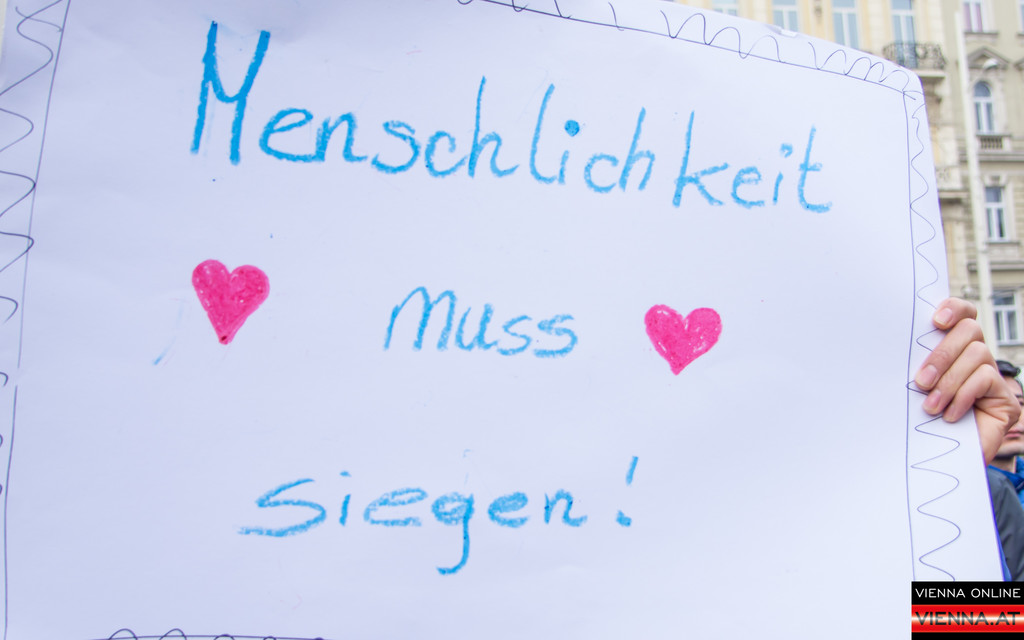 Menschlichkeit
muss
siegen!
VIENNA ONLINE
VIENNA.AT